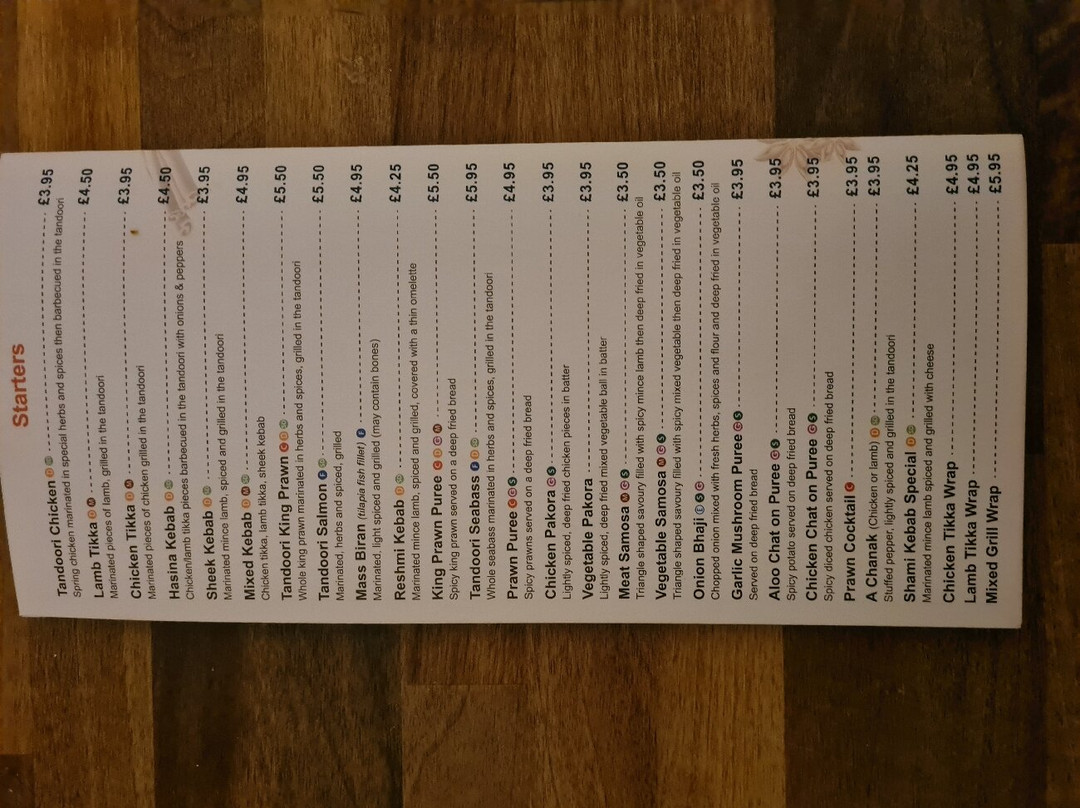 Starters
Tandoori Chicken £3.95
Spring chicken marinated in special herbs and spices then barbecued in the tandoori
Lamb Tikka £4.50
Marinated pieces of lamb, grilled in the tandoori
Chicken Tikka £3.95
Marinated pieces of chicken grilled in the tandoori
Hasina Kebab £4.50
Chicken/lamb tikka pieces barbecued in the tandoori with onions & peppers
Sheek Kebab £3.95
Marinated mince lamb, spiced and grilled in the tandoori
Mixed Kebab £4.95
Chicken tikka, lamb tikka, sheek kebab
Tandoori King Prawn £5.50
Whole king prawn marinated in herbs and spices, grilled in the tandoori
Tandoori Salmon £5.50
Marinated, herbs and spiced, grilled
Mass Biran (tulapia fish fillet) £4.95
Marinated, light spiced and grilled (may contain bones)
Reshmi Kebab £4.25
Marinated mince lamb, spiced and grilled, covered with a thin omelette
King Prawn Puree £5.50
Spicy king prawn served on a deep fried bread
Tandoori Seabass £5.95
Whole seabass marinated in herbs and spices, grilled in the tandoori
Prawn Puree £4.95
Spicy prawns served on a deep fried bread
Chicken Pakora £3.95
Lightly spiced, deep fried chicken pieces in batter
Vegetable Pakora £3.95
Lightly spiced, deep fried mixed vegetable ball in batter
Meat Samosa £3.50
Triangle shaped savoury filled with spicy mince lamb then deep fried in vegetable oil
Vegetable Samosa £3.50
Triangle shaped savoury filled with spicy mixed vegetable then deep fried in vegetable oil
Onion Bhaji £3.50
Chopped onion mixed with fresh herbs, spices and flour and deep fried in vegetable oil
Garlic Mushroom Puree £3.95
Served on deep fried bread
Aloo Chat on Puree £3.95
Spicy potato served on deep fried bread
Chicken Chat on Puree £3.95
Spicy diced chicken served on deep fried bread
Prawn Cocktail £3.95
A Channak (Chicken or lamb) £3.95
Stuffed pepper, lightly spiced and grilled in the tandoori
Shami Kebab Special £4.25
Marinated mince lamb spiced and grilled with cheese
Chicken Tikka Wrap £4.95
Lamb Tikka Wrap £4.95
Mixed Grill Wrap £5.95